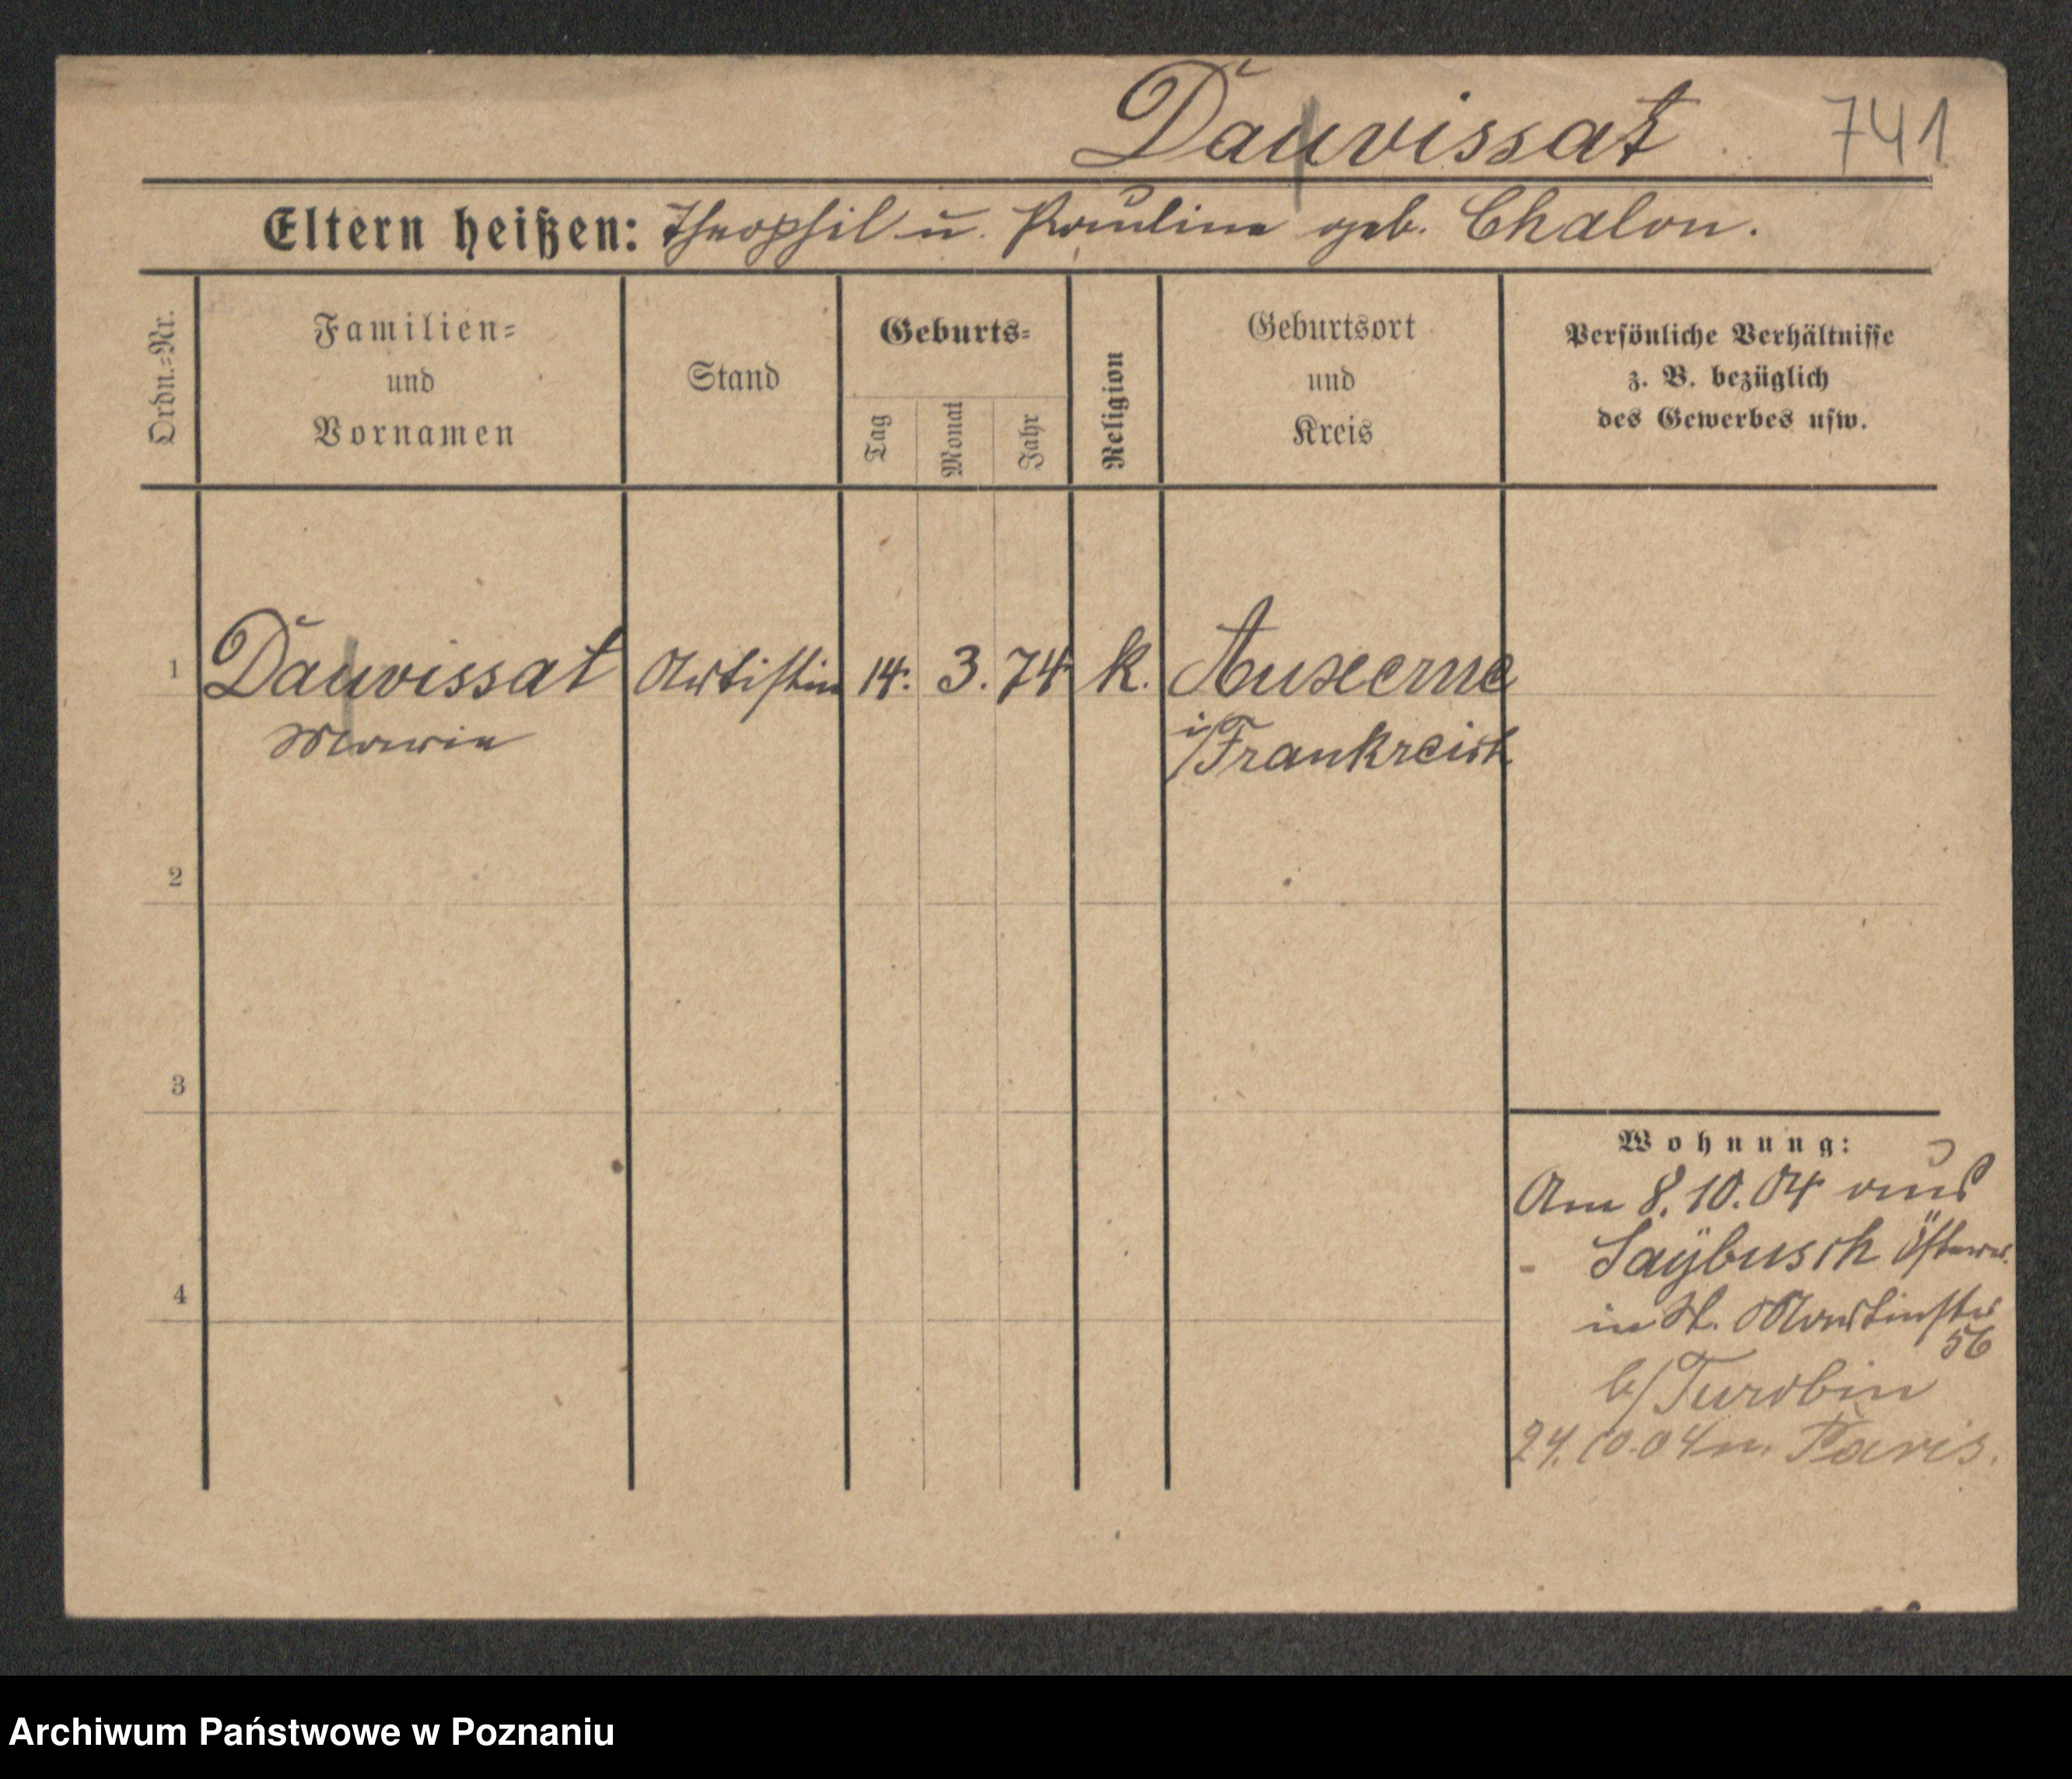 Dauvissat 741
Eltern heißen: Theophil u. Pauline geb. Chalon.
Ordn.=Nr.
Familien=
und
Vornamen
Stand
Geburts=
Tag
Monat
Jahr
Religion
Geburtsort
und
Kreis
Persönliche Verhältnisse
z. B. bezüglich
des Gewerbes usw.
1 Dauvissat Artistin 14. 3. 74 k. Auxerne
Marie i/Frankreich
2
3
4
Wohnung:
Am 8.10.04 aus
Saybusch Österr.
in St. Martinstr
56
b/Turobin
24.10.04 n. Paris.
Archiwum Państwowe w Poznaniu